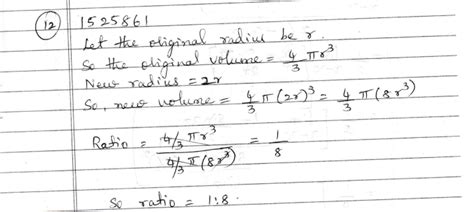 12 1525861
Let the original radius be r.
So the original volume = 4/3 πr³
New radius = 2r
So, new volume = 4/3 π (2r)³ = 4/3 π (8r³)
Ratio = (4/3 πr³)/(4/3 π (8r³)) = 1/8
So ratio = 1:8.